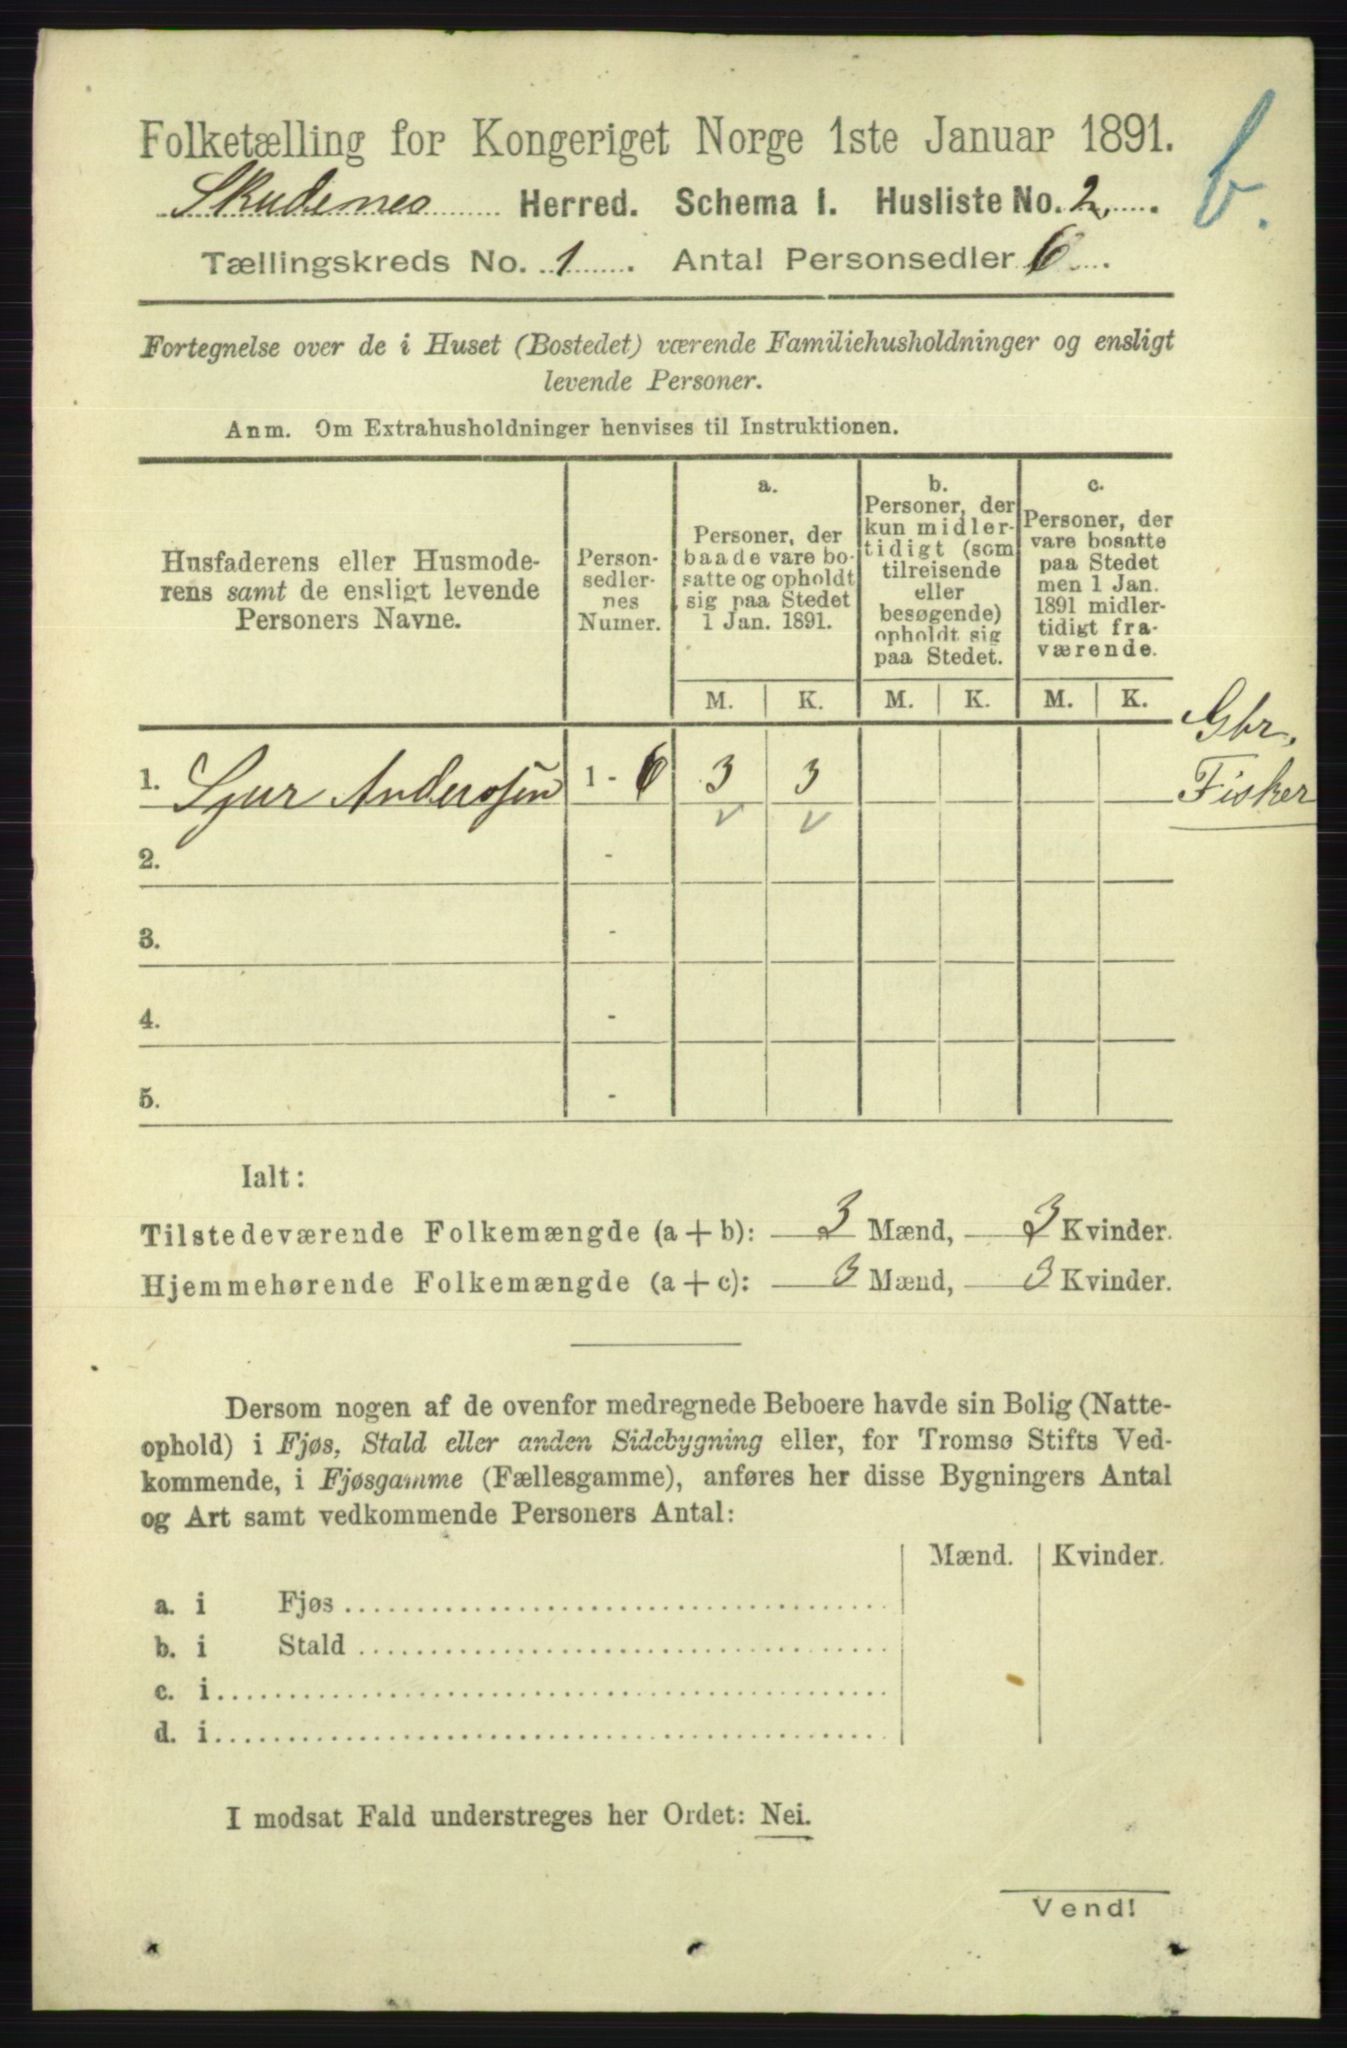 Folketælling for Kongeriget Norge 1ste Januar 1891.
b.
Skudenes Herred. Schema I. Husliste No. 2.
Tællingskreds No. 1. Antal Personsedler 6.
Fortegnelse over de i Huset (Bostedet) værende Familiehusholdninger og ensligt
levende Personer.
Anm. Om Extrahusholdninger henvises til Instruktionen.
Husfaderens eller Husmode-
rens samt de ensligt levende
Personers Navne.
Person-
sedler-
nes
Numer.
a.
Personer, der
baade vare bo-
satte og opholdt
sig paa Stedet
1 Jan. 1891.
b.
Personer, der
kun midler-
tidigt (som
tilreisende
eller
besøgende)
opholdt sig
paa Stedet.
c.
Personer, der
vare bosatte
paa Stedet
men 1 Jan.
1891 midler-
tidigt fra-
værende.
M. K. M. K. M. K.
1. Sjur Anderssen 1 - 6 3 3
Gbr.
Fisker
2. -
3. -
4. -
5. -
Ialt:
Tilstedeværende Folkemængde (a + b): 3 Mænd, 3 Kvinder.
Hjemmehørende Folkemængde (a + c): 3 Mænd, 3 Kvinder.
Dersom nogen af de ovenfor medregnede Beboere havde sin Bolig (Natte-
ophold) i Fjøs, Stald eller anden Sidebygning eller, for Tromsø Stifts Ved-
kommende, i Fjøsgamme (Fællesgamme), anføres her disse Bygningers Antal
og Art samt vedkommende Personers Antal:
Mænd. Kvinder.
a. i Fjøs
b. i Stald
c. i
d. i
I modsat Fald understreges her Ordet: Nei.
Vend!